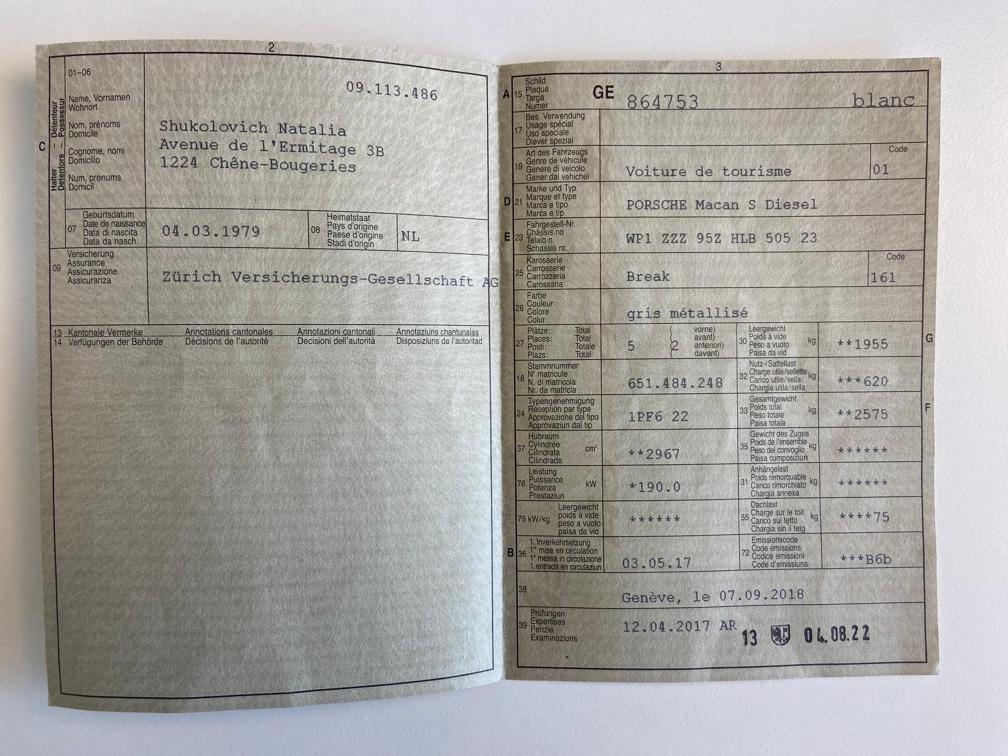 2
01-06
09.113.486
C
Halter – Détenteur
Detentore – Possessur
Name, Vornamen
Wohnort
Nom, prénoms
Domicile
Cognome, nomi
Domicilio
Num, prenums
Domicil
Shukolovich Natalia
Avenue de l'Ermitage 3B
1224 Chêne-Bougeries
07
Geburtsdatum
Date de naissance
Data di nascita
Data da nasch.
04.03.1979
08
Heimatstaat
Pays d'origine
Paese d'origine
Stadi d'origin
NL
09
Versicherung
Assurance
Assicurazione
Assicuranza
Zürich Versicherungs-Gesellschaft AG
13 Kantonale Vermerke Annotations cantonales Annotazioni cantonali Annotaziuns chantunalas
14 Verfügungen der Behörde Décisions de l'autorité Decisioni dell'autorità Disposiziuns da l'autoritad
3
A 15
Schild
Plaque
Targa
Numer
GE 864753 blanc
17
Bes. Verwendung
Usage spécial
Uso speciale
Diever spezial
19
Art des Fahrzeugs
Genre de véhicule
Genere di veicolo
Gener dal vehichel
Voiture de tourisme
Code
01
D 21
Marke und Typ
Marque et type
Marca e tipo
Marca e tip
PORSCHE Macan S Diesel
E 23
Fahrgestell-Nr.
Châssis no
Telaio n.
Schassis nr.
WP1 ZZZ 95Z HLB 505 23
25
Karosserie
Carrosserie
Carrozzeria
Carossaria
Break
Code
161
26
Farbe
Couleur
Colore
Colur
gris métallisé
27
Plätze: Total
Places: Total
Posti: Totale
Plazs: Total
5 (2
vorne)
avant)
anteriori)
davant)
30
Leergewicht
Poids à vide
Peso a vuoto
Paisa da vid
kg
**1955
G
18
Stammnummer
N° matricule
N. di matricola
Nr. da matricla
651.484.248
32
Nutz-/Sattellast
Charge utile/sellette
Carico utile/sella
Chargia utila/sella
kg
***620
24
Typengenehmigung
Réception par type
Approvazione del tipo
Approvaziun dal tip
1PF6 22
33
Gesamtgewicht
Poids total
Peso totale
Paisa totala
kg
**2575
F
37
Hubraum
Cylindrée
Cilindrata
Cilindrada
cm³
**2967
35
Gewicht des Zuges
Poids de l'ensemble
Peso del convoglio
Paisa cumposiziun
kg
******
76
Leistung
Puissance
Potenza
Prestaziun
kW
*190.0
31
Anhängelast
Poids remorquable
Carico rimorchiato
Chargia annexa
kg
******
78 kW/kg
Leergewicht
poids à vide
peso a vuoto
paisa da vid
******
55
Dachlast
Charge sur le toit
Carico sul tetto
Chargia sin il tetg
kg
****75
B 36
1. Inverkehrsetzung
1re mise en circulation
1a messa in circolazione
1. entrada en circulaziun
03.05.17
72
Emissionscode
Code émissions
Codice emissioni
Code d'emissiuns
***B6b
38
Genève, le 07.09.2018
39
Prüfungen
Expertises
Perizie
Examinaziuns
12.04.2017 AR
13 04.08.22